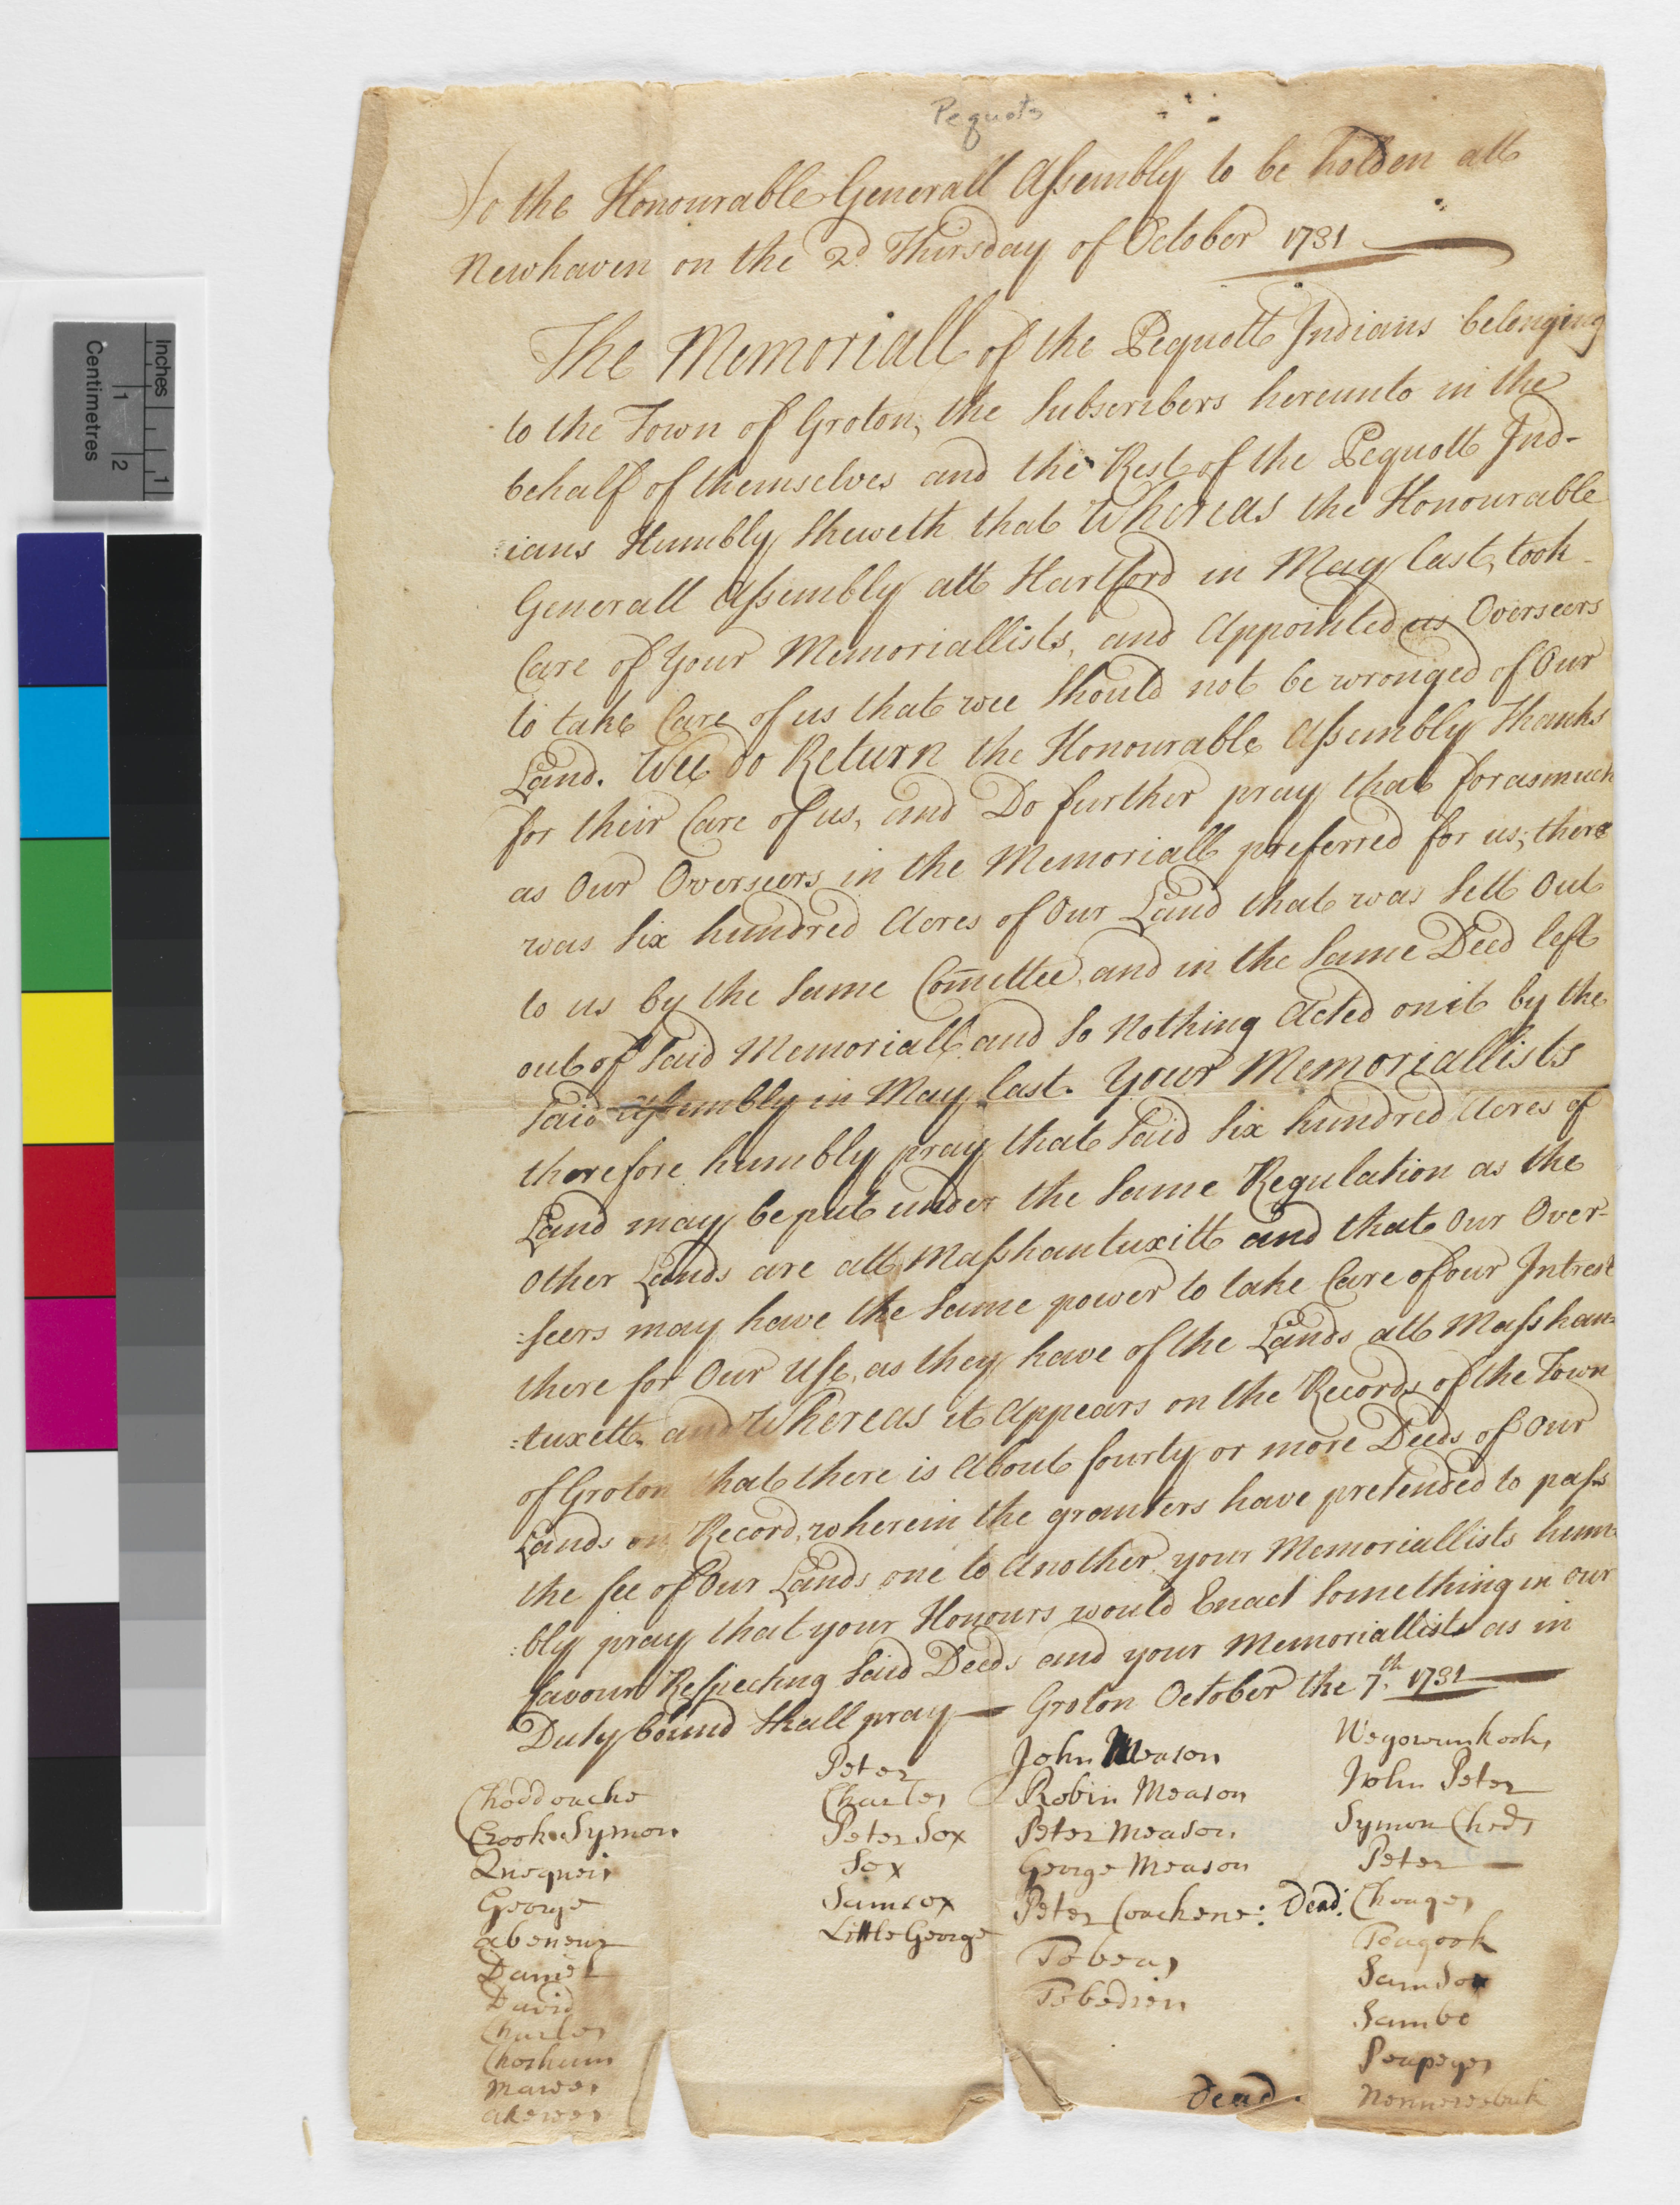 Inches
1
1
Centimetres
1
2
Pequots
To the Honourable Generall Assembly to be holden att
Newhaven on the 2d Thirsday of October 1731
The Memoriall of the Pequott Indians belonging
to the Town of Groton, the Subscribers hereunto in the
behalf of themselves and the Rest of the Pequott Ind-
:ians Humbly Sheweth that Whereas the Honourable
Generall Assembly att Hartford in May last, took
Care of Your Memoriallists, and Appointed us Overseers
to take Care of us that wee Should not be wronged of Our
Land. Wee do Return the Honourable Assembly Thanks
for their Care of us, and Do further pray that forasmuch
as Our Overseers in the Memoriall preferred for us, there
was Six hundred Acres of Our Land that was Sett Out
to us by the Same Comittee, and in the Same Deed left
out of Said Memoriall and So Nothing Acted on it by the
Said Assembly in May last. Your Memoriallists
therefore humbly pray that Said Six hundred Acres of
Land may be put under the Same Regulation as the
Other Lands are att Masshantuxitt and that Our Over-
:seers may have the Same power to take Care of our Intrest
there for Our Use, as they have of the Lands att Masshan:
:tuxett, and Whereas it Appears on the Records of the Town
of Groton that there is About fourty or more Deeds of Our
Lands on Record, wherein the granters have pretended to pass
the fee of Our Lands one to Another, your Memoriallists hum:
:bly pray that your Honours would Enact Something in our
favour Respecting Said Deeds and your Memoriallists as in
Duty bound Shall pray — Groton October the 7th. 1731
Choddouche
Crook Symon
Quequeis
George
abenewr
Daniel
David
Charles
Choshum
Mawes
Peter
Charles
Peter Sox
Sox
Samsox
Little George
John Meason
Robin Meason
Peter Meason
George Meason
Peter Couchene: Dead:
Tobeas
Tobedien
Dead.
Wegowunhooks
John Peter
Symon Cheds
Peter
Chouges
Poagooh
Sam Sox
Sambo
Peapeges